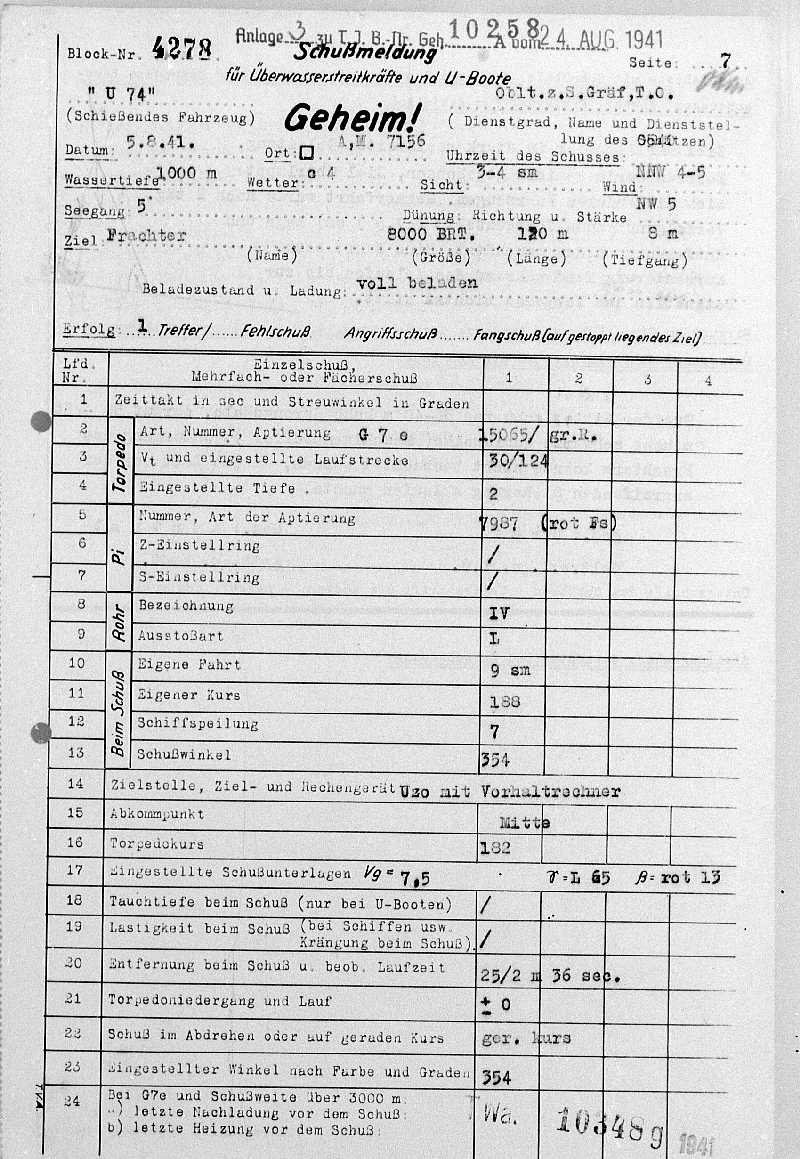 Anlage 3 zu T.J.B.-Nr. Geh. 10258 A vom 24. AUG. 1941
Block-Nr. 4278 Schußmeldung Seite: 7
für Überwasserstreitkräfte und U-Boote
"U 74" Geheim! Oblt.z.S.Gräf,T.O.
(Schießendes Fahrzeug) (Dienstgrad, Name und Dienststel-
lung des Schützen)
Datum: 5.8.41. Ort: A.M. 7156 Uhrzeit des Schusses:
Wassertiefe 1000 m Wetter: c 4 Sicht: 3-4 sm Wind: NNW 4-5
Seegang 5 Dünung: Richtung u. Stärke NW 5
Ziel Frachter 8000 BRT. 120 m 8 m
(Name) (Größe) (Länge) (Tiefgang)
Beladezustand u. Ladung: voll beladen
Erfolg: 1 Treffer/ Fehlschuß Angriffsschuß Fangschuß (auf gestoppt liegendes Ziel)
Lfd. Nr. Einzelschuß, Mehrfach- oder Fächerschuß 1 2 3 4
1 Zeittakt in sec und Streuwinkel in Graden
Torpedo
2 Art, Nummer, Aptierung G 7 e 15065/ gr.R.
3 Vt und eingestellte Laufstrecke 30/124
4 Eingestellte Tiefe. 2
Pi
5 Nummer, Art der Aptierung 7987 (rot Fs)
6 Z-Einstellring /
7 S-Einstellring /
Rohr
8 Bezeichnung IV
9 Ausstoßart L
Beim Schuß
10 Eigene Fahrt 9 sm
11 Eigener Kurs 188
12 Schiffspeilung 7
13 Schußwinkel 354
14 Zielstelle, Ziel- und Rechengerät Uzo mit Vorhaltrechner
15 Abkommpunkt Mitte
16 Torpedokurs 182
17 Eingestellte Schußunterlagen Vg = 7,5 γ = L 65 β = rot 13
18 Tauchtiefe beim Schuß (nur bei U-Booten) /
19 Lastigkeit beim Schuß (bei Schiffen usw. Krängung beim Schuß) /
20 Entfernung beim Schuß u. beob. Laufzeit 25/2 m 36 sec.
21 Torpedoniedergang und Lauf ± 0
22 Schuß im Abdrehen oder auf geraden Kurs ger. kurs
23 Eingestellter Winkel nach Farbe und Graden 354
24 Bei G7e und Schußweite über 3000 m:
a) letzte Nachladung vor dem Schuß:
b) letzte Heizung vor dem Schuß:
T Wa. 10348 g 1941
TVA